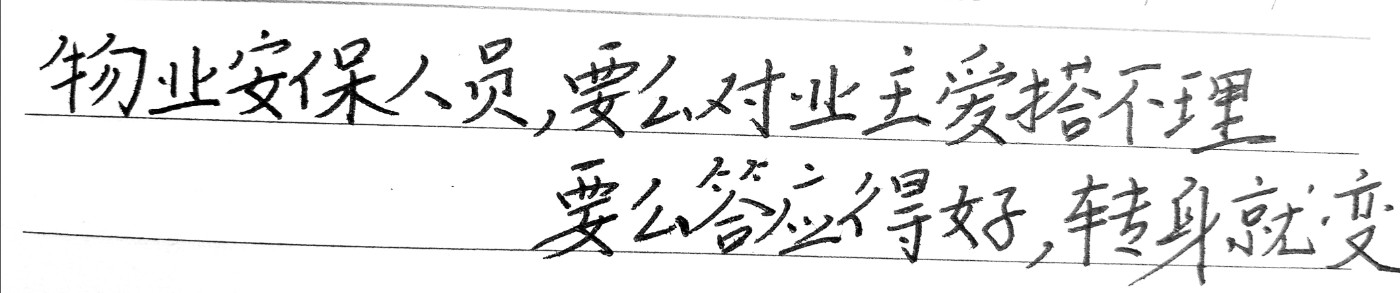 物业安保人员,要么对业主爱搭不理
要么答应得好,转身就变